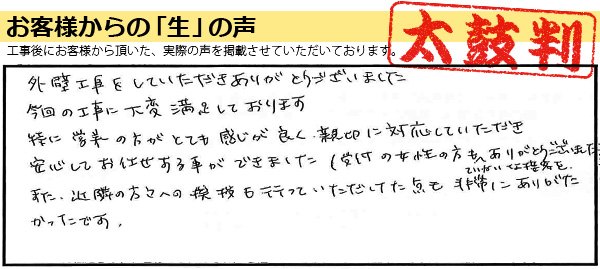 お客様からの「生」の声
工事後にお客様から頂いた、実際の声を掲載させていただいております。
太鼓判
外壁工事をしていただきありがとうございました
今回の工事に大変満足しております
特に営業の方がとても感じが良く、親切に対応していただき
安心してお任せする事ができました（受付の女性の方も、ていねいな接客をありがとうございました
また、近隣の方々への挨拶も行っていただいてた点も非常にありがた
かったです。